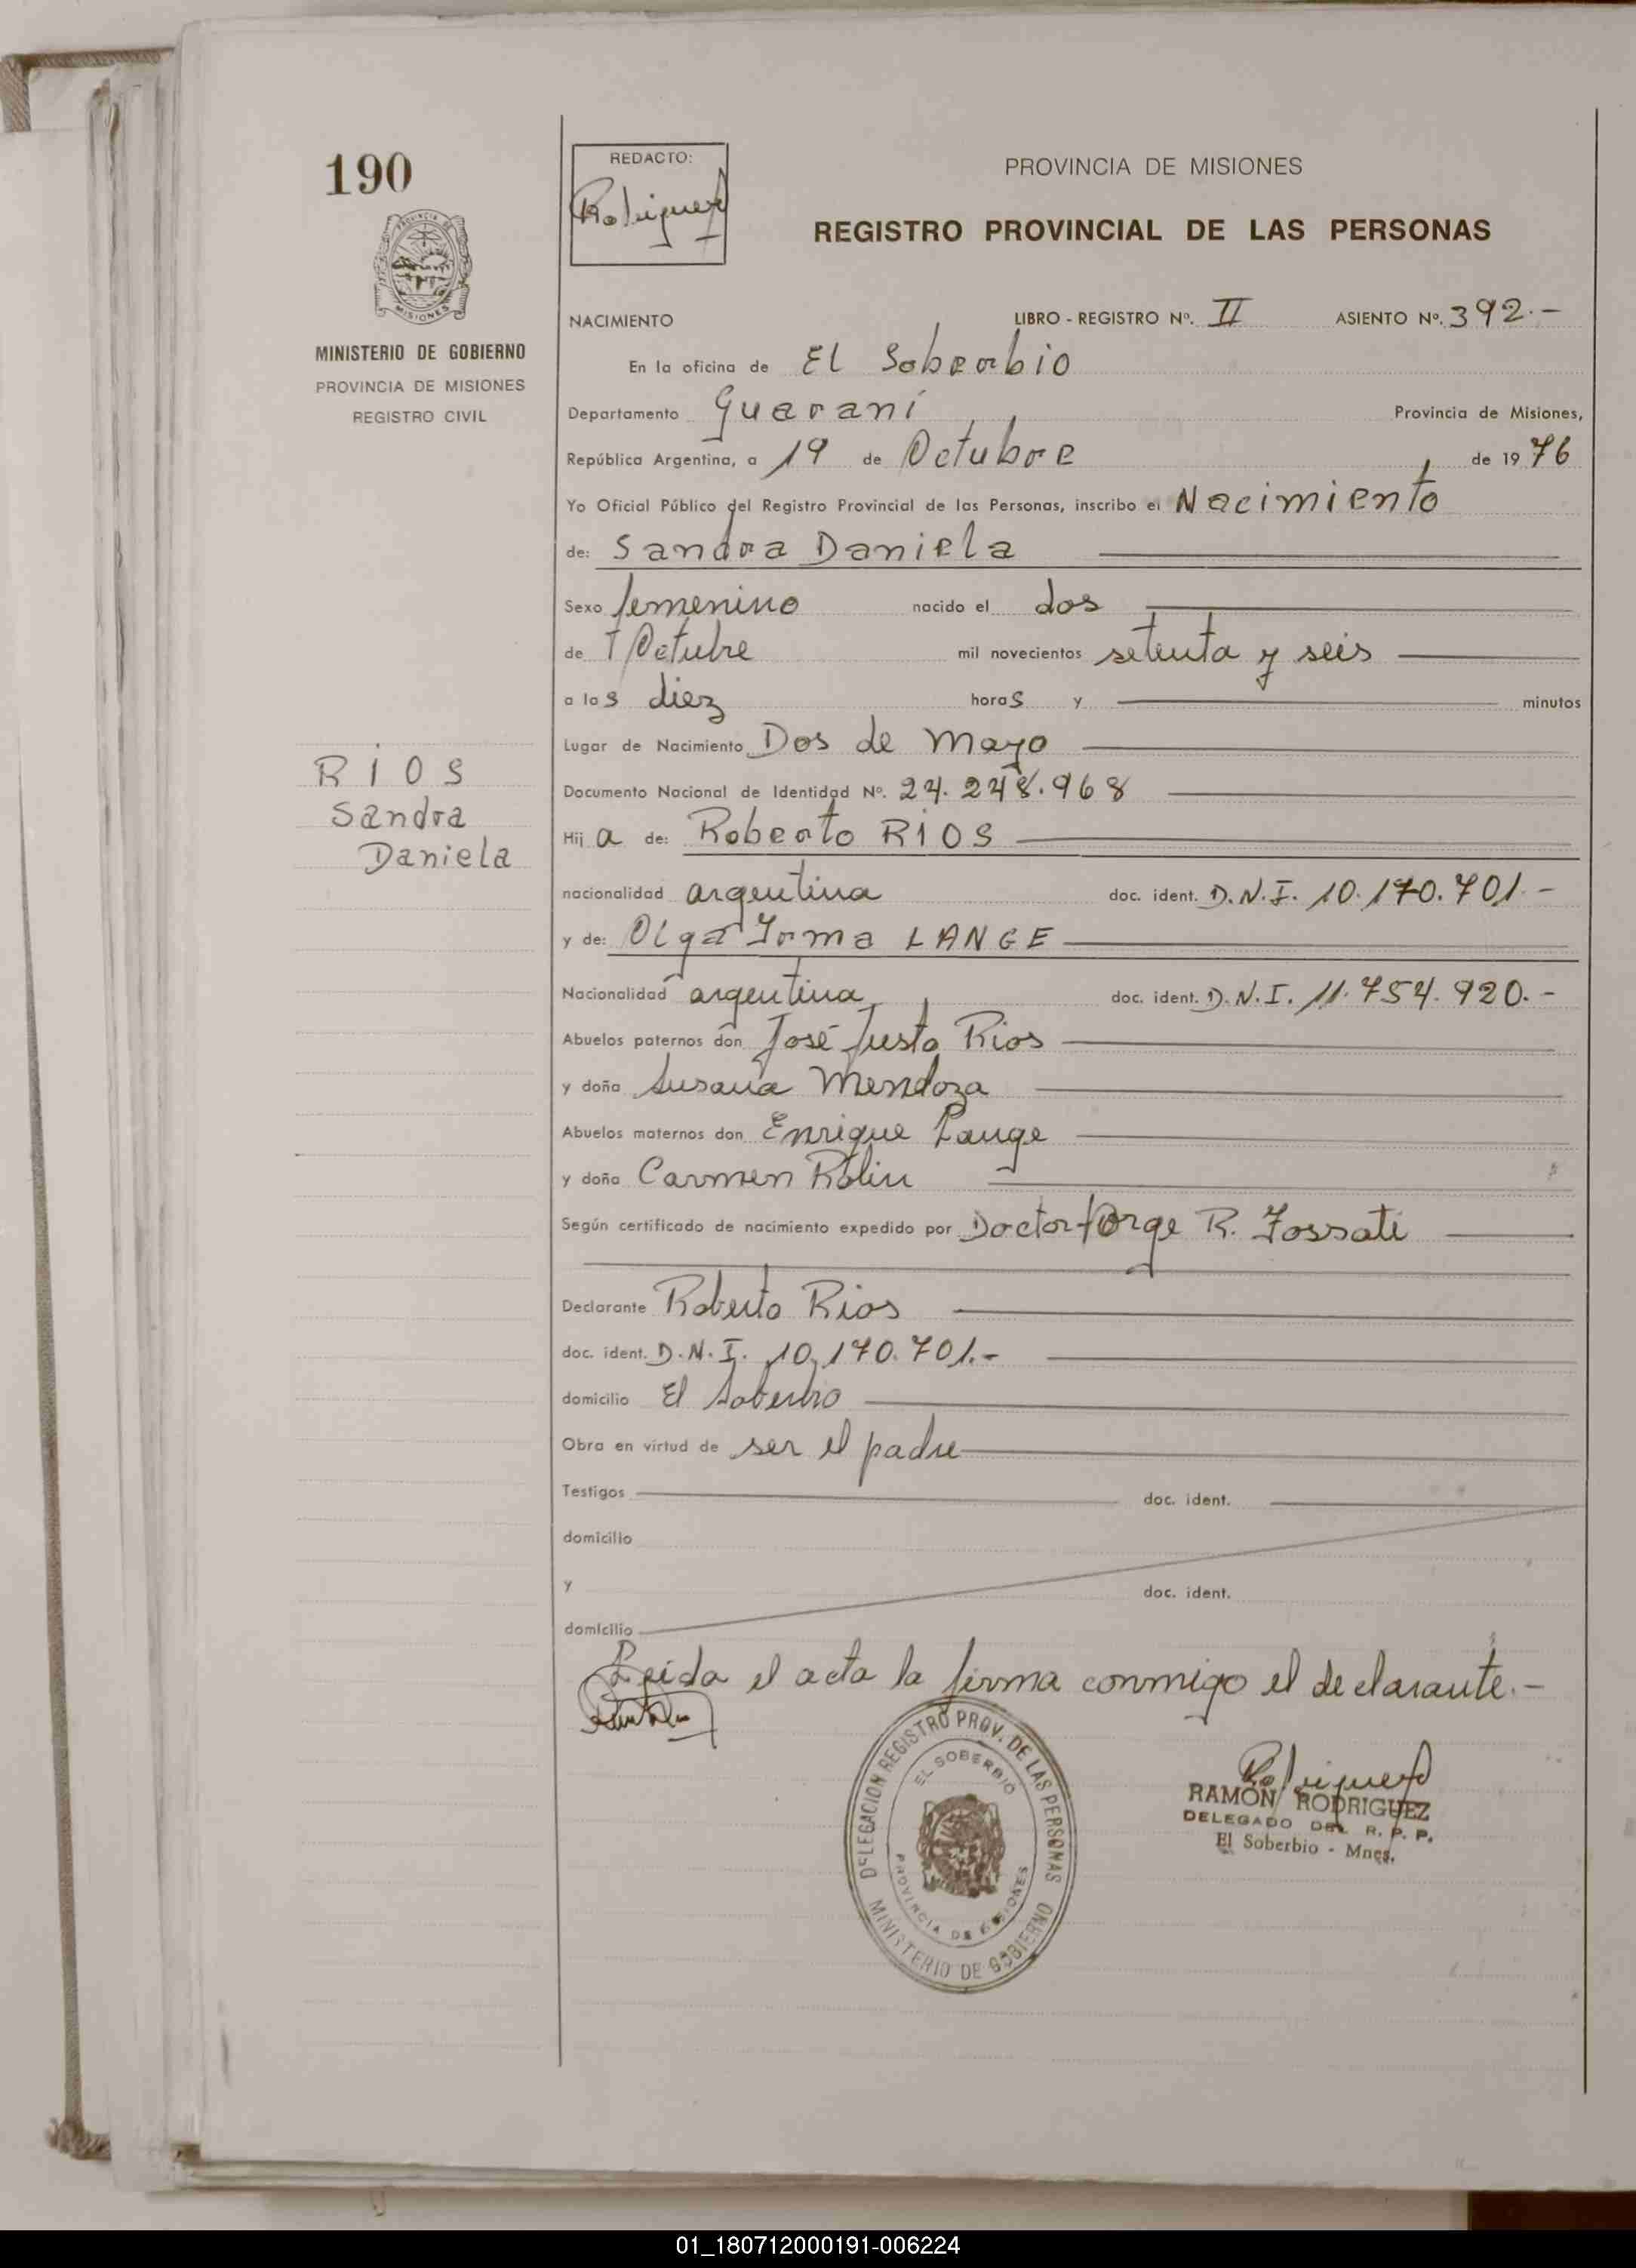 190
REDACTO:
Rodriguez
PROVINCIA DE MISIONES
REGISTRO PROVINCIAL DE LAS PERSONAS
PROVINCIA DE
MISIONES
MINISTERIO DE GOBIERNO
PROVINCIA DE MISIONES
REGISTRO CIVIL
NACIMIENTO LIBRO - REGISTRO Nº. II ASIENTO Nº. 392.-
En la oficina de El Soberbio
Departamento Guaraní Provincia de Misiones,
República Argentina, a 19 de Octubre de 19 76
Yo Oficial Público del Registro Provincial de las Personas, inscribo el Nacimiento
de: Sandra Daniela
Sexo femenino nacido el dos
de Octubre mil novecientos setenta y seis
a las diez horas y minutos
Lugar de Nacimiento Dos de Mayo
Documento Nacional de Identidad Nº. 24.248.968
RIOS
Sandra
Daniela
Hij a de: Roberto RIOS
nacionalidad argentina doc. ident. D.N.I. 10.170.701.-
y de: Olga Irma LANGE
Nacionalidad argentina doc. ident. D.N.I. 11.754.920.-
Abuelos paternos don José Justo Rios
y doña Susana Mendoza
Abuelos maternos don Enrique Lange
y doña Carmen Rolin
Según certificado de nacimiento expedido por Doctor Jorge R. Fossati
Declarante Roberto Rios
doc. ident. D.N.I. 10,170.701.-
domicilio El Soberbio
Obra en virtud de ser el padre
Testigos doc. ident.
domicilio
y doc. ident.
domicilio
Leida el acta la firma conmigo el declarante.-
DELEGACION REGISTRO PROV. DE LAS PERSONAS
EL SOBERBIO
PROVINCIA DE MISIONES
MINISTERIO DE GOBIERNO
Rodriguez
RAMÓN RODRIGUEZ
DELEGADO DEL R. P. P.
El Soberbio - Mnes.
01_180712000191-006224